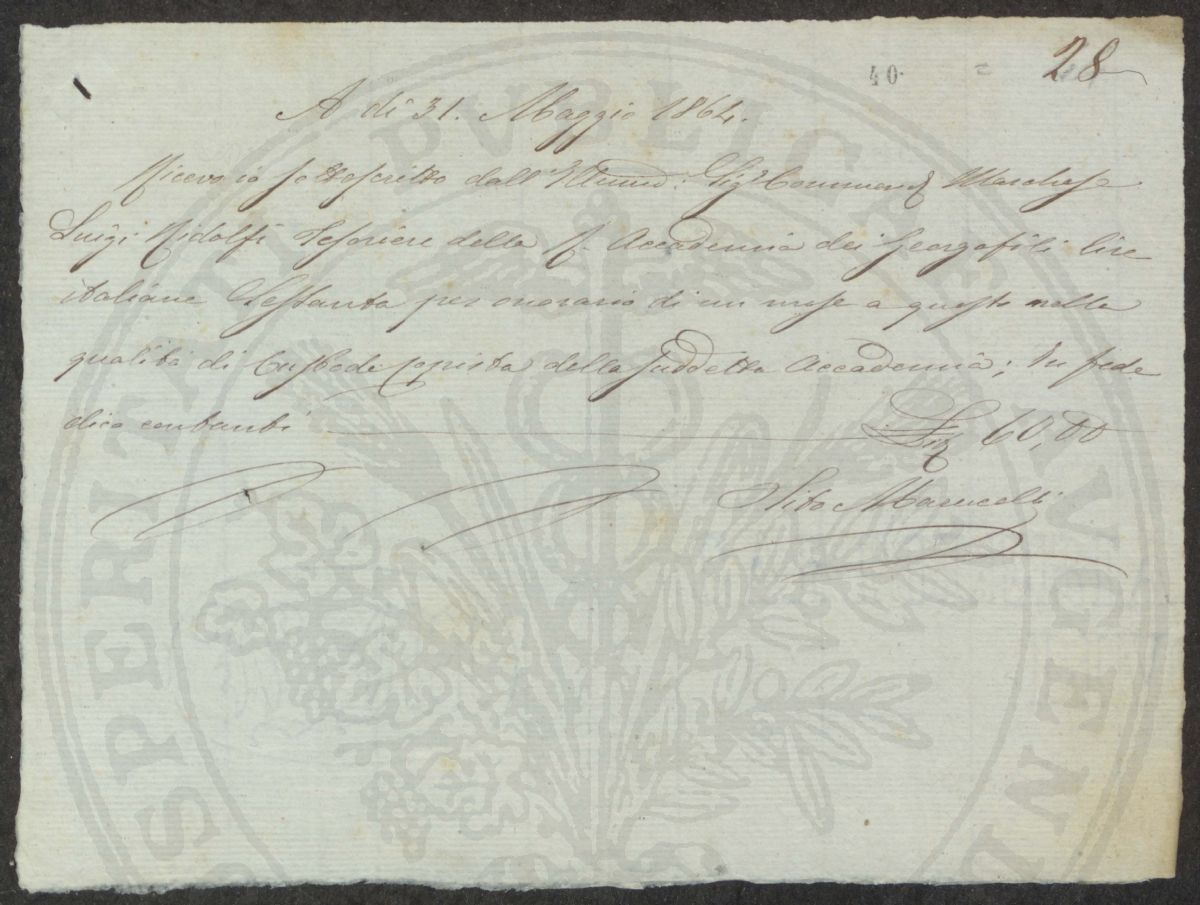 40. = 28
A dì 31. Maggio 1864.
Ricevo io sottoscritto dall'Illmo: Sigr Commend Marchese
Luigi Ridolfi Tesoriere della R. Accademia dei Georgofili lire
italiane Sessanta per onorario di un mese a questo nella
qualità di Custode copista della suddetta Accademia; In fede
dico contanti ——— 60,00
Marucelli
PROSPERITATI PVBLICAE AVGEN